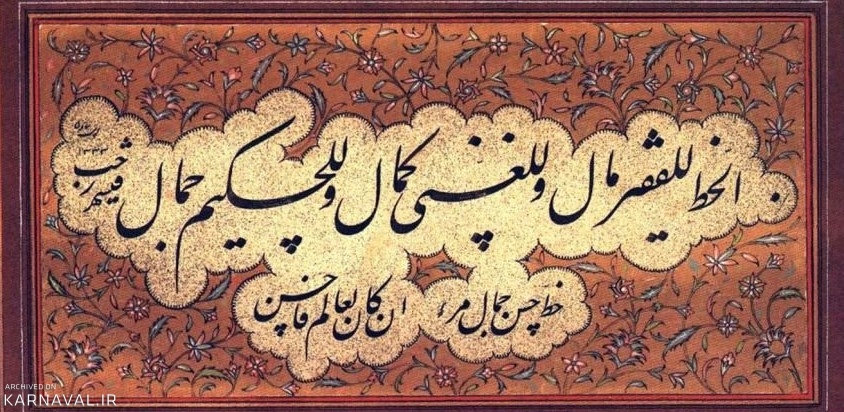 الخط للفقیر مال وللغنی کمال وللحکیم جمال
فی شهر رجب
خط حسن جمال مرء ان کان بعالم فاحسن
ARCHIVED ON
KARNAVAL.IR